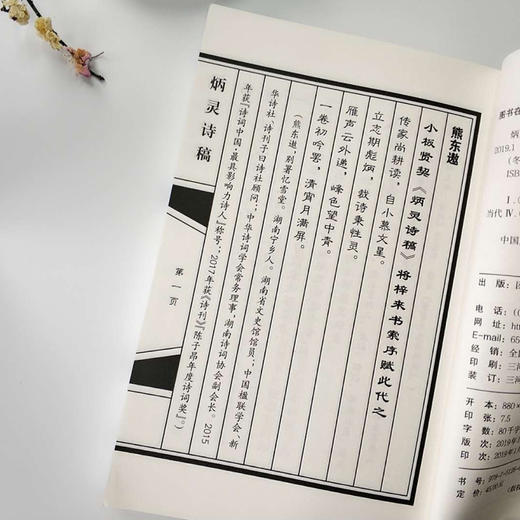 熊东遨
小板贤契《炳灵诗稿》将梓来书索序赋此代之
传家尚耕读，自小慕文星。
立志期彪炳，裁诗秉性灵。
雁声云外递，峰色望中青。
一卷初吟罢，清宵月满屏。
（熊东遨，别署忆雪堂。湖南宁乡人。湖南省文史馆馆员；中国楹联学会、新
华诗社、诗刊子曰诗社顾问；中华诗词学会常务理事，湖南诗词协会副会长。2015
年获『诗词中国·最具影响力诗人』称号；2017年获《诗刊》『陈子昂年度诗词奖』。）
炳灵诗稿
第一页
图书在
炳
2019.1
（冬
ISB
Ⅰ.①
当代 Ⅳ.
中国
出 版：
电 话：
网 址：
E-mail：65
经 销：全
印 刷：三河
装 订：三河
开 本：880×
印 张：7.5
字 数：80千字
版 次：2019年
印 次：2019年1
书 号：
定 价：